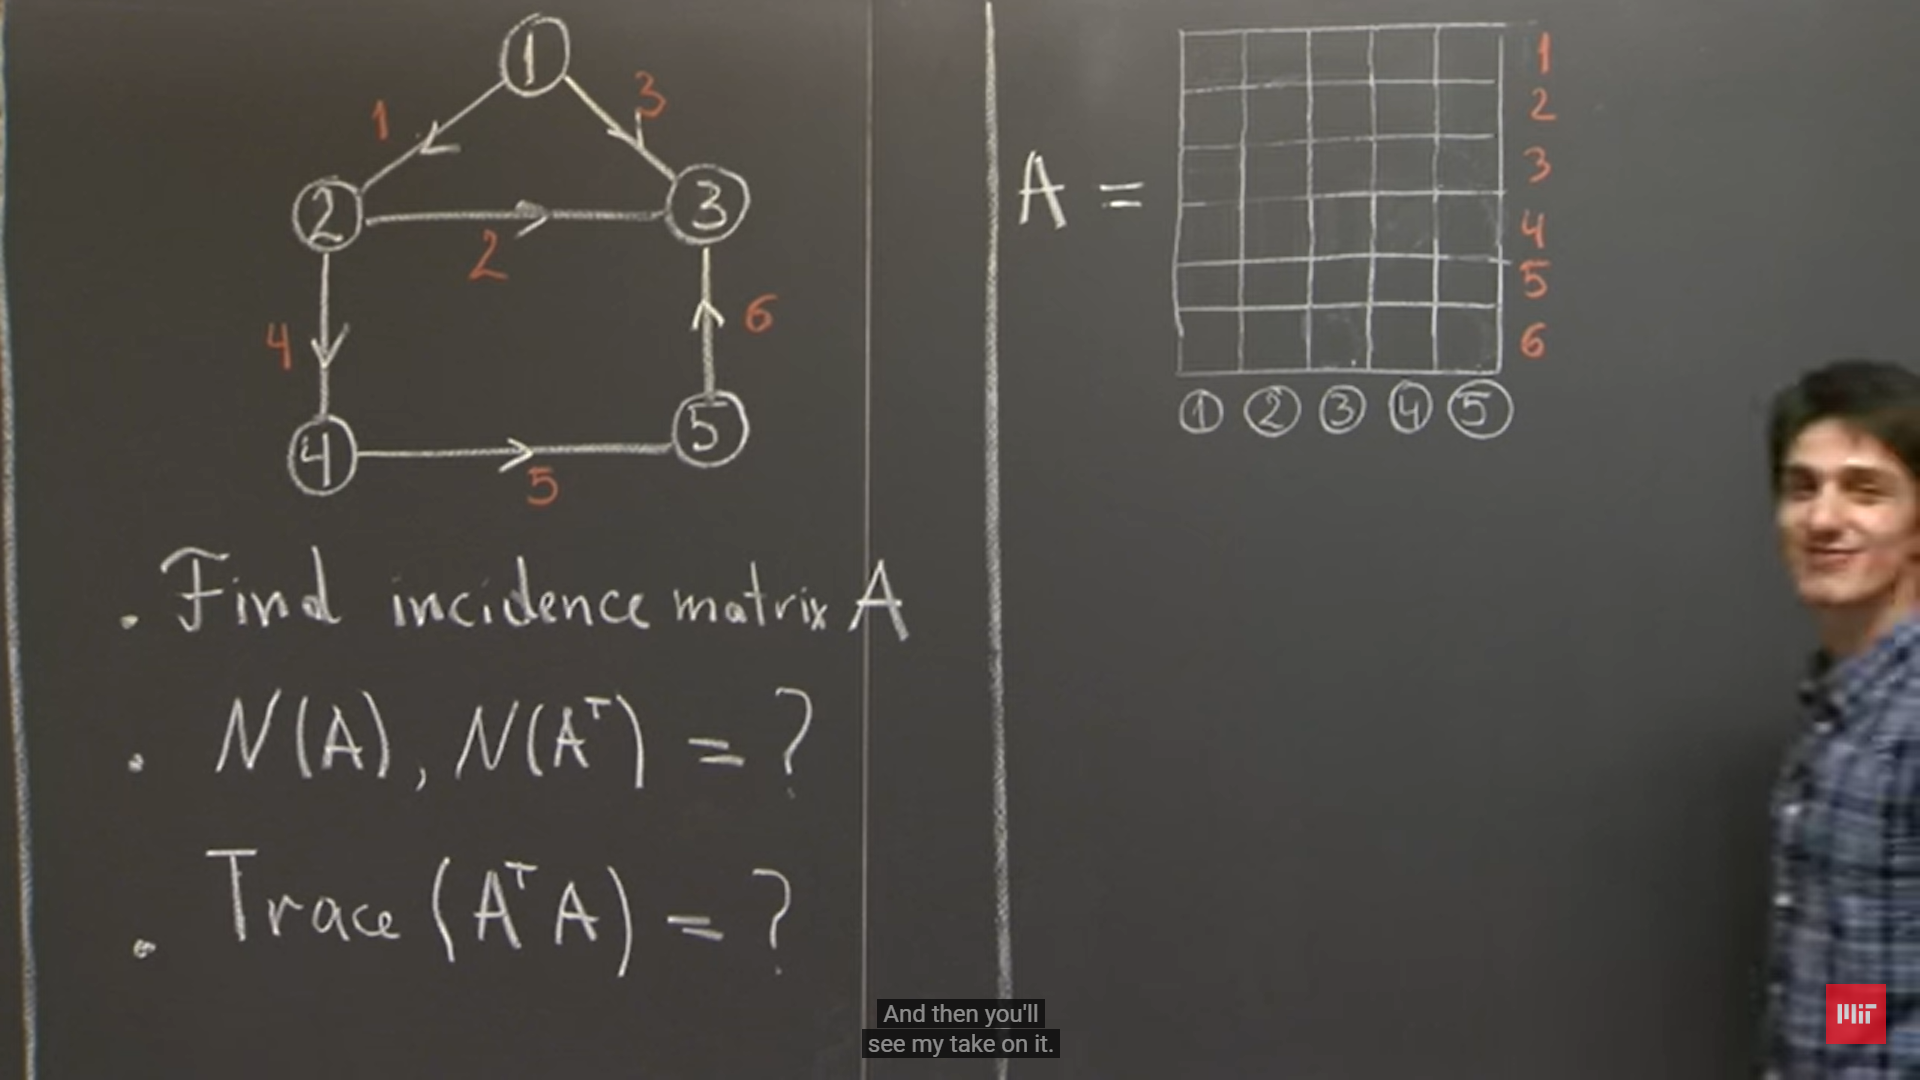 1
1
3
2
3
2
4
6
4
5
5
. Find incidence matrix A
. N(A), N(Aᵀ) = ?
. Trace (AᵀA) = ?
A =
1
2
3
4
5
6
1 2 3 4 5
And then you'll
see my take on it.
MIT